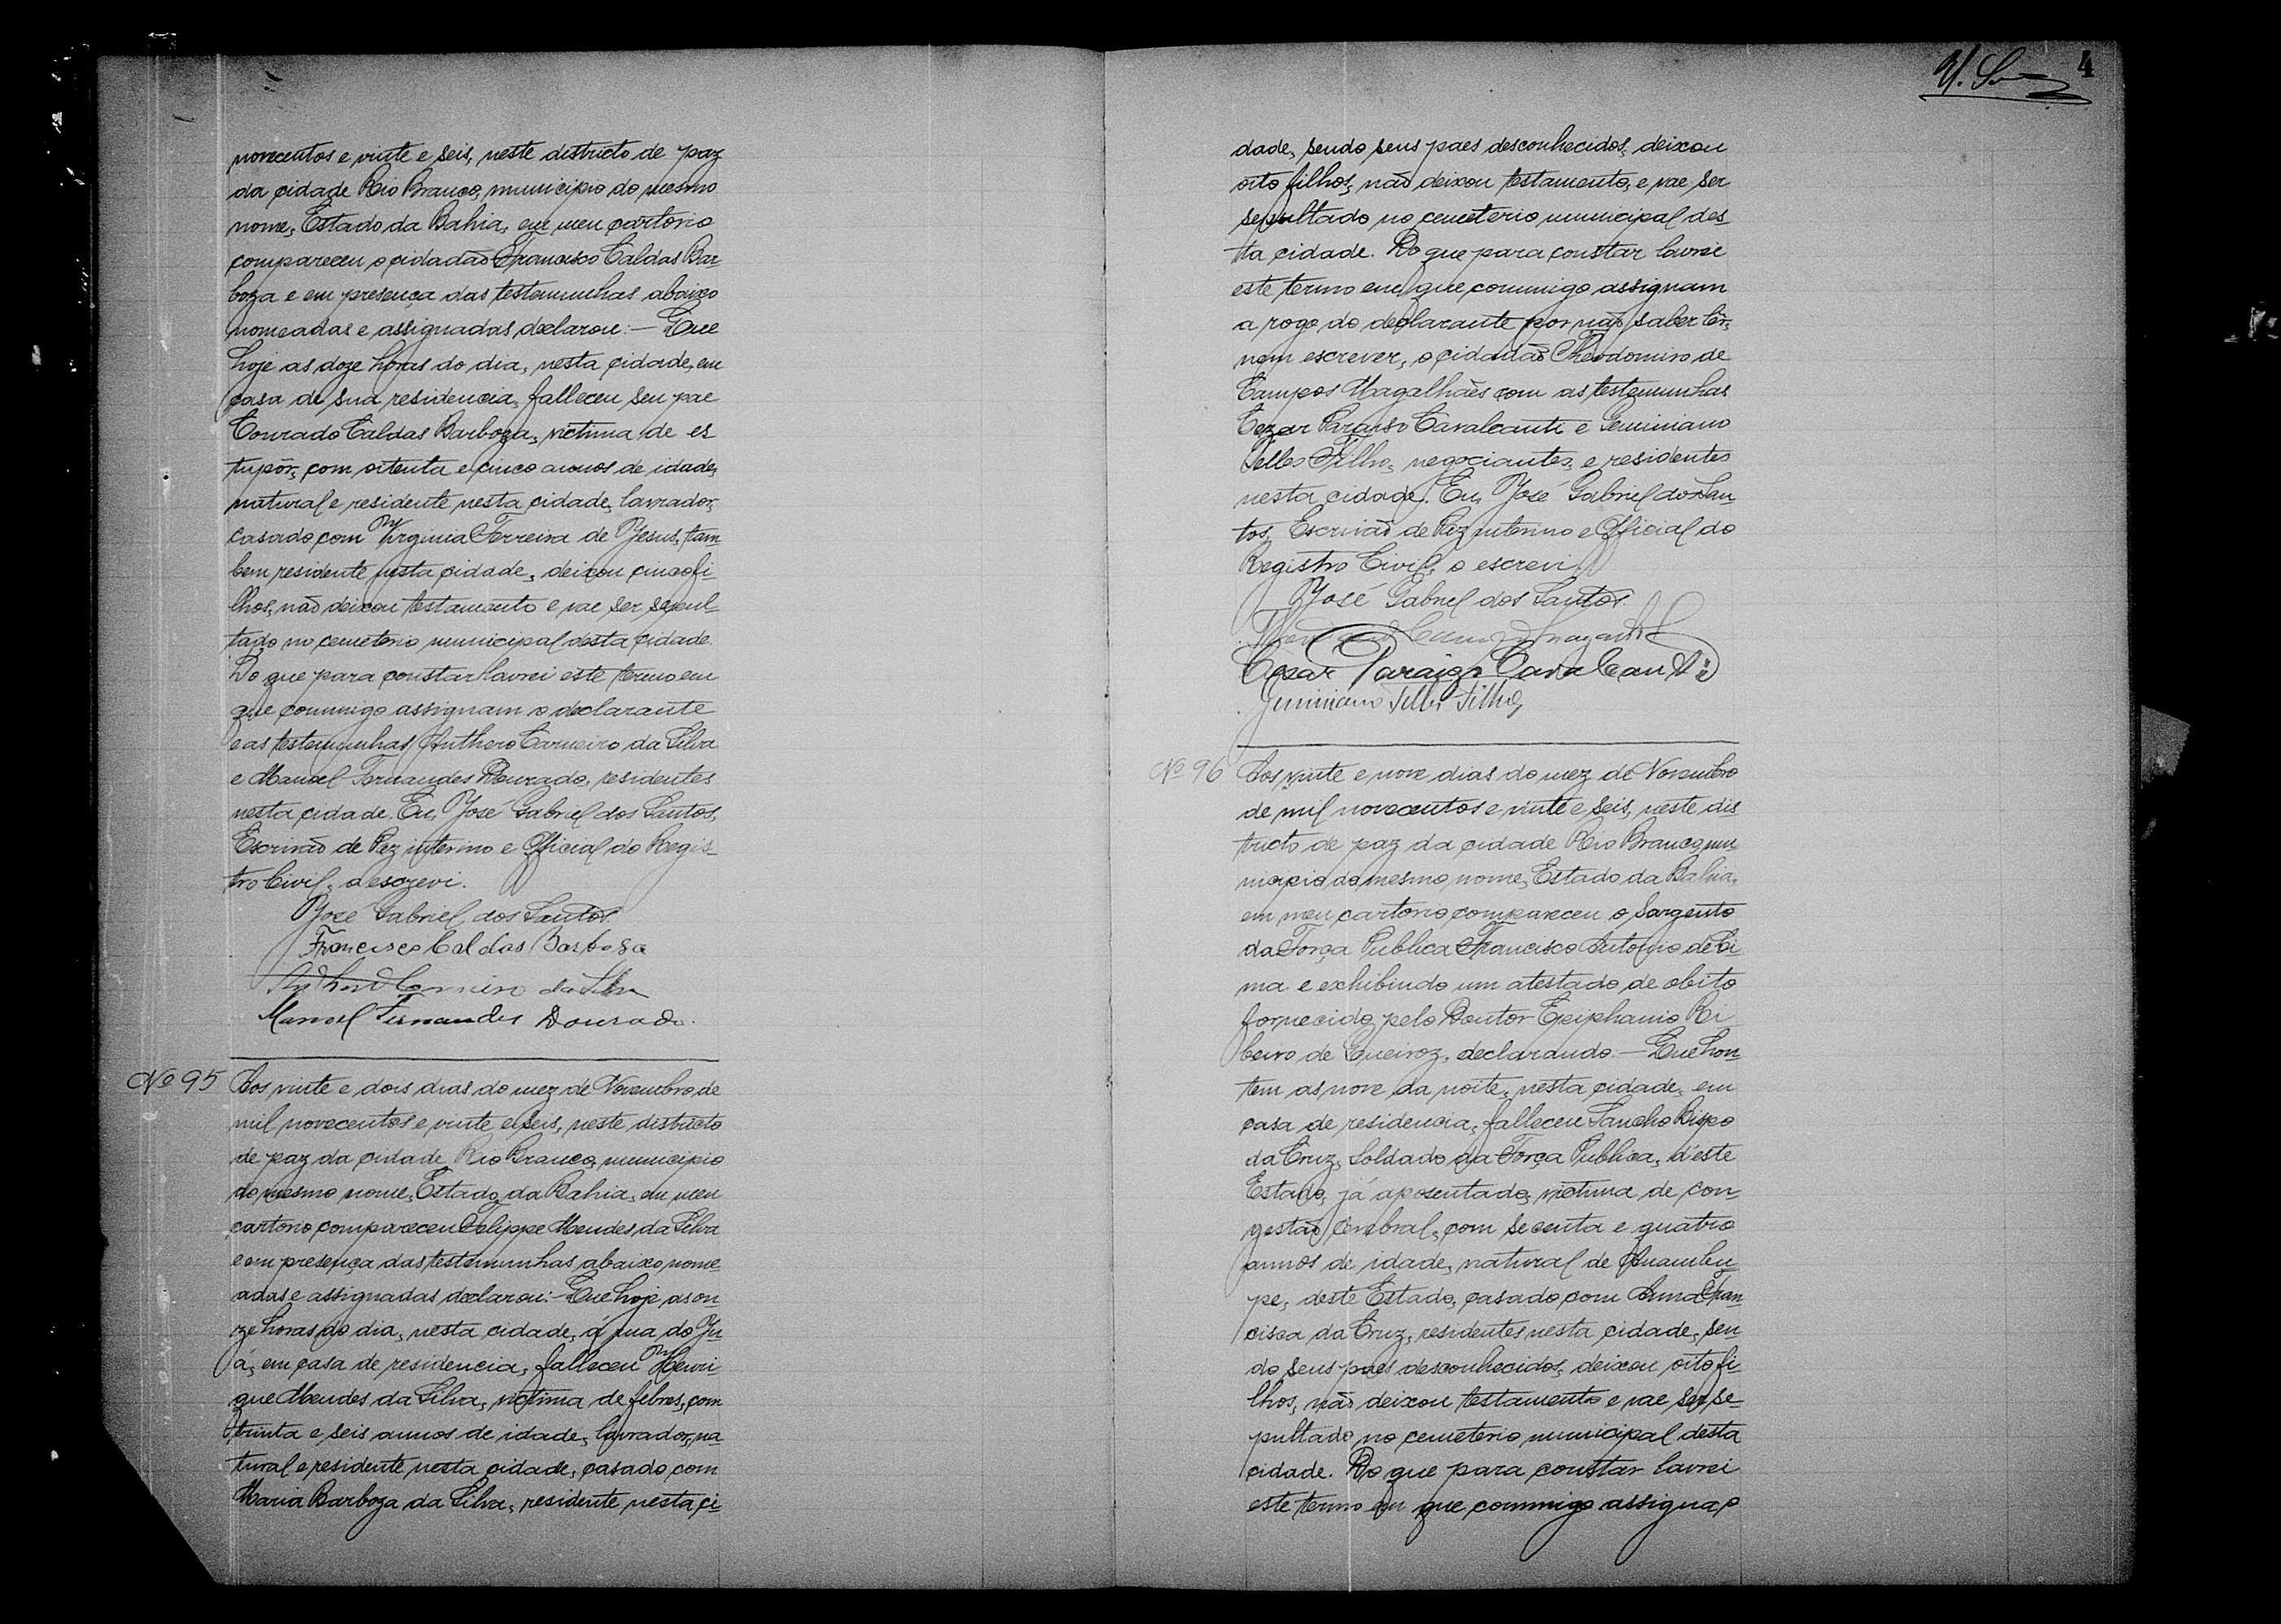 novecentos e vinte e seis, neste districto de paz
da cidade Rio Branco, municipio do mesmo
nome, Estado da Bahia, em meu cartorio
compareceu o cidadão Francisco Caldas Bar-
boza e em presença das testemunhas abaixo
nomeadas e assignadas declarou: — Que
hoje as doze horas do dia, nesta cidade, em
casa de sua residencia, falleceu seu pae
Conrado Caldas Barboza, victima de es
tupôr, com oitenta e cinco annos de idade,
natural e residente nesta cidade, lavrador,
casado com Virginia Ferreira de Jesus, tam-
bem residente nesta cidade, deixou cinco fi-
lhos, não deixou testamento e vae ser sepul-
tado no cemeterio municipal desta cidade.
Do que para constar lavrei este termo em
que commigo assignam o declarante
e as testemunhas Anthero Carneiro da Silva
e Manoel Fernandes Dourado, residentes
nesta cidade. Eu, José Gabriel dos Santos,
Escrivão de Paz interino e Official do Regis-
tro Civil, o escrevi.
José Gabriel dos Santos
Francisco Caldas Barbosa
Anthero Carneiro da Silva
Manoel Fernandes Dourado.
Nº 95 Aos vinte e dois dias do mez de Novembro de
mil novecentos e vinte e seis, neste districto
de paz da cidade Rio Branco, municipio
do mesmo nome, Estado da Bahia, em meu
cartorio compareceu Felippe Mendes da Silva
e em presença das testemunhas abaixo nome-
adas e assignadas declarou: — Que hoje as on-
ze horas do dia, nesta cidade, á rua do
á, em casa de residencia, falleceu Henri-
que Mendes da Silva, victima de febres, com
trinta e seis annos de idade, lavrador, na-
tural e residente nesta cidade, casado com
Maria Barboza da Silva, residente nesta ci-
4
dade, sendo seus paes desconhecidos, deixou
oito filhos, não deixou testamento, e vae ser
sepultado no cemeterio municipal des-
ta cidade. Do que para constar lavrei
este termo em que commigo assignam
a rogo do declarante por não saber lêr,
nem escrever, o cidadão Theodomiro de
Campos Magalhães com as testemunhas
Cezar Paraiso Cavalcanti e Geminiano
Telles Filho, negociantes, e residentes
nesta cidade. Eu, José Gabriel dos San-
tos, Escrivão de Paz interino e Official do
Registro Civil, o escrevi.
José Gabriel dos Santos.
Cezar Paraizo Cavalcanti
Geminiano Telles Filho,
Nº 96 Aos vinte e nove dias do mez de Novembro
de mil novecentos e vinte e seis, neste dis
tricto de paz da cidade Rio Branco, mu
nicipio do mesmo nome, Estado da Bahia,
em meu cartorio compareceu o Sargento
da Força Publica Francisco Antonio de Li
ma e exhibindo um atestado de obito
fornecido pelo Doutor Epiphanio Ri
beiro de Queiroz, declarando: — Que hon-
tem as nove da noite, nesta cidade, em
casa de residencia, falleceu Sancho Bispo
da Cruz, soldado da Força Publica, d'este
Estado, já aposentado, victima de con-
gestão cerebral, com secenta e quatro
annos de idade, natural de Inambu-
pe, deste Estado, casado com Anna Fran-
cisca da Cruz, residentes nesta cidade, sen-
do seus paes desconhecidos, deixou oito fi-
lhos, não deixou testamento e vae ser se-
pultado no cemeterio municipal desta
cidade. Do que para constar lavrei
este termo em que commigo assigna, o